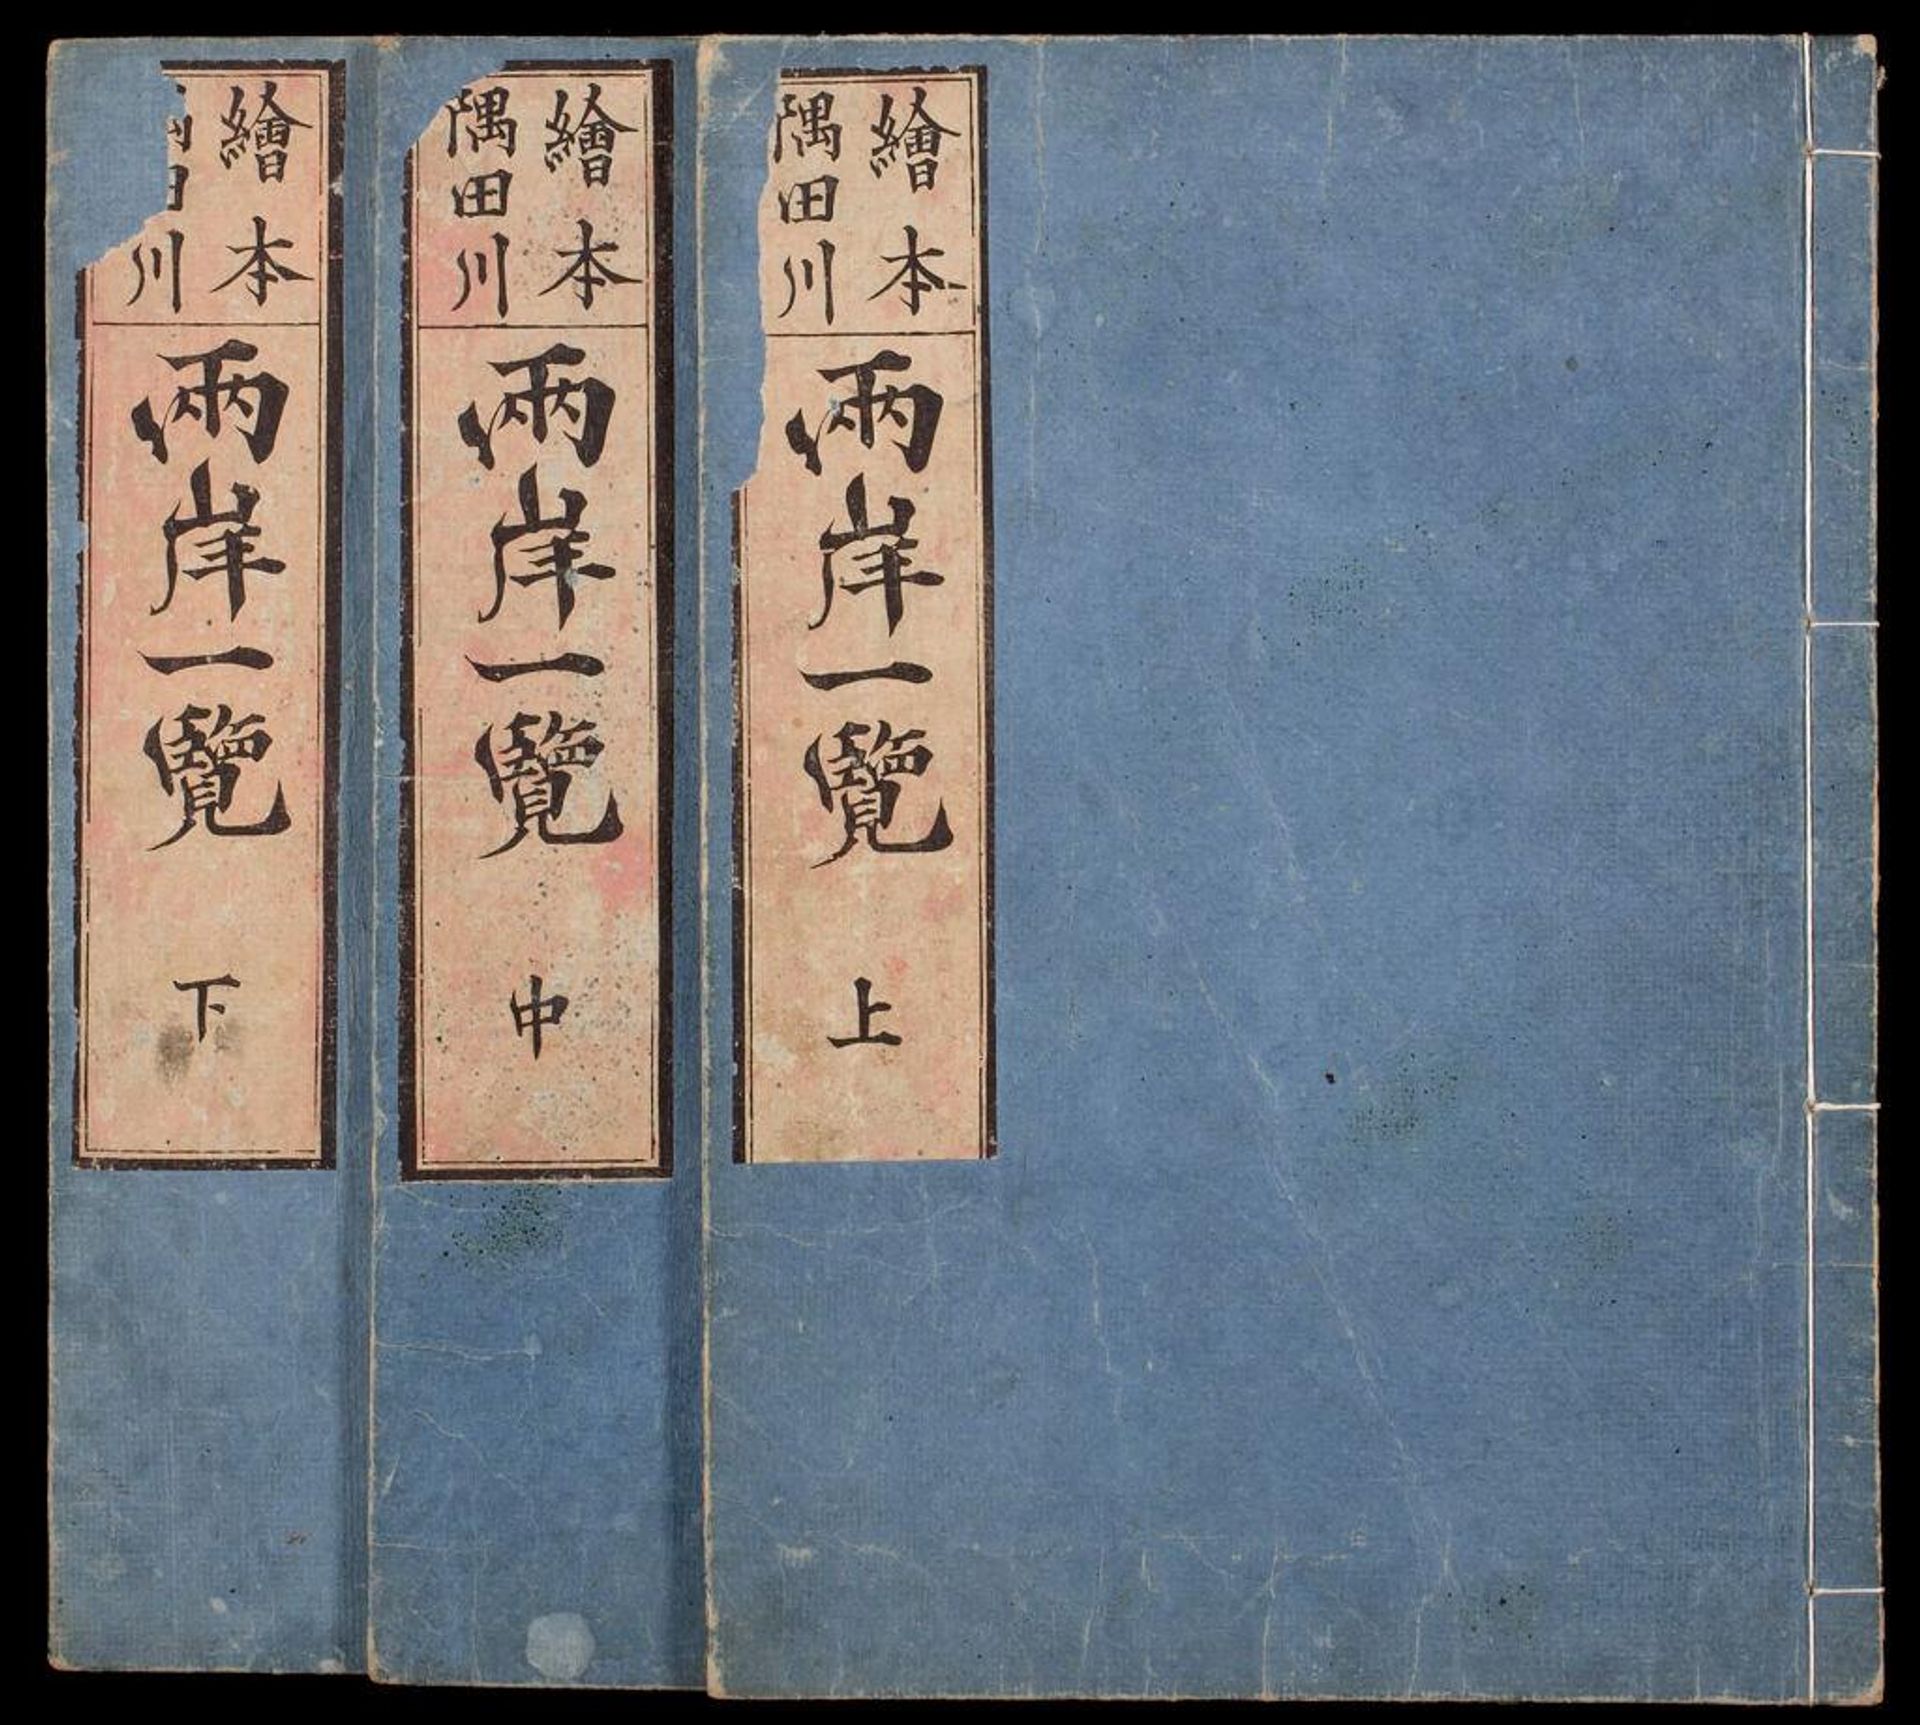 繪本
隅田川
兩岸一覽
上
繪本
隅田川
兩岸一覽
中
繪本
田川
兩岸一覽
下